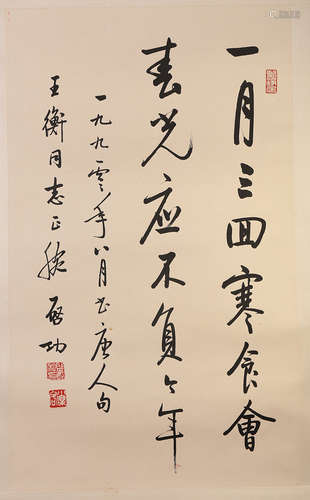 一月三回寒食會
春光應不負今年
一九九零年八月書唐人句
王衡同志正腕 啟功